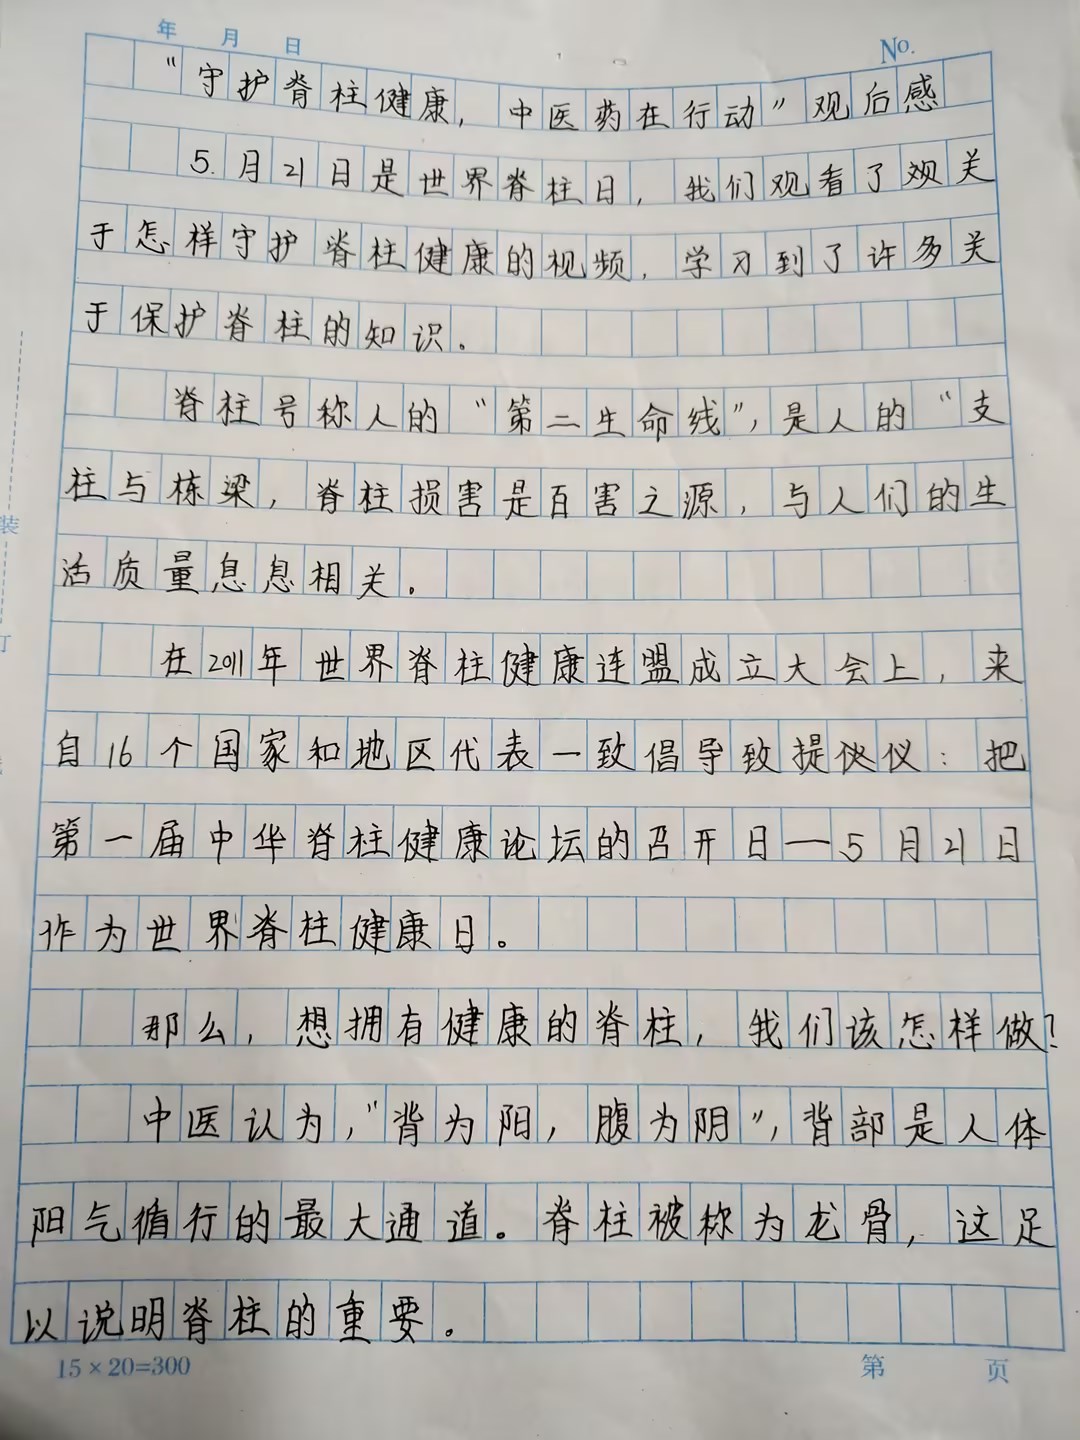 年 月 日 No.
“守护脊柱健康，中医药在行动”观后感
5.月21日是世界脊柱日，我们观看了观关
于怎样守护脊柱健康的视频，学习到了许多关
于保护脊柱的知识。
脊柱号称人的“第二生命线”，是人的“支
柱与栋梁，脊柱损害是百害之源，与人们的生
活质量息息相关。
在2011年世界脊柱健康连盟成立大会上，来
自16个国家和地区代表一致倡导致提仪：把
第一届中华脊柱健康论坛的召开日—5月21日
作为世界脊柱健康日。
那么，想拥有健康的脊柱，我们该怎样做？
中医认为，“背为阳，腹为阴”，背部是人体
阳气循行的最大通道。脊柱被称为龙骨，这足
以说明脊柱的重要。
15×20=300 第 页
装
订